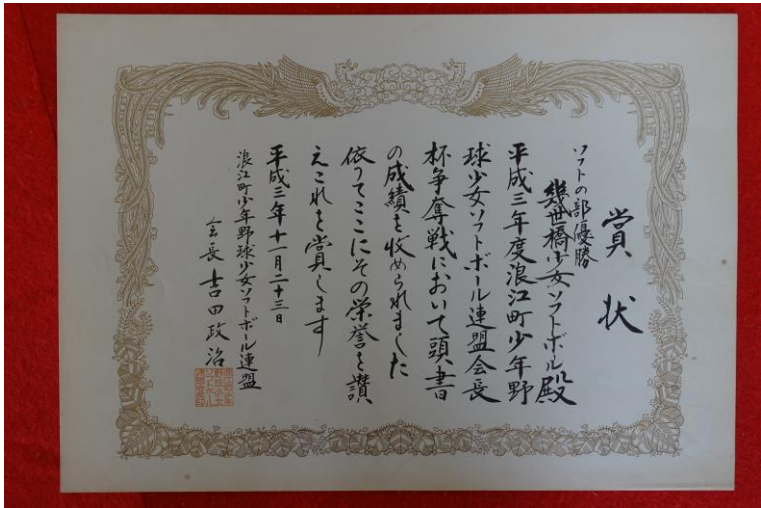 賞状
ソフトの部優勝
幾世橋少女ソフトボール殿
平成三年度浪江町少年野
球少女ソフトボール連盟会長
杯争奪戦において頭書
の成績を収められました
依つてここにその栄誉を讃
えこれを賞します
平成三年十一月二十三日
浪江町少年野球少女ソフトボール連盟
会長 吉田政治